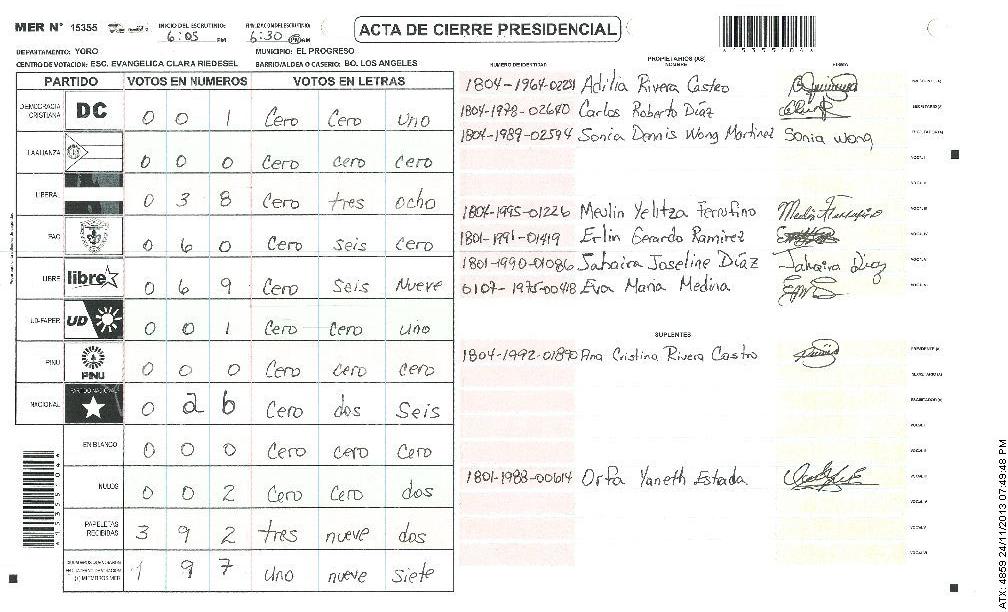 MER N° 15355 INICIO DEL ESCRUTINIO: 6:05 PM FINALIZACION DEL ESCRUTINIO: 6:30 PM AM ACTA DE CIERRE PRESIDENCIAL
DEPARTAMENTO: YORO MUNICIPIO: EL PROGRESO
CENTRO DE VOTACION: ESC. EVANGELICA CLARA RIEDESEL BARRIO/ALDEA O CASERIO: BO. LOS ANGELES
PARTIDO VOTOS EN NUMEROS VOTOS EN LETRAS
DEMOCRACIA CRISTIANA DC 0 0 1 Cero Cero uno
LA ALIANZA 0 0 0 Cero cero Cero
LIBERAL 0 3 8 Cero tres ocho
PAC 0 6 0 Cero seis cero
LIBRE libre 0 6 9 Cero Seis Nueve
UD-FAPER UD 0 0 1 Cero Cero uno
PINU PINU 0 0 0 Cero cero cero
NACIONAL PARTIDO NACIONAL 0 2 6 Cero dos Seis
EN BLANCO 0 0 0 Cero Cero Cero
NULOS 0 0 2 Cero Cero dos
PAPELETAS RECIBIDAS 3 9 2 tres nueve dos
(+) MIEMBROS MER 1 9 7 uno nueve siete
PROPIETARIOS (AS)
NUMERO DE IDENTIDAD NOMBRE FIRMA
1804-1964-02281 Adilia Rivera Castro
1804-1978-02680 Carlos Roberto Díaz
1804-1989-02594 Sonia Dennis Wong Martinez Sonia Wong
1804-1995-01226 Meulin Yelitza Ferrufino
1801-1991-01419 Erlin Gerardo Ramirez
1801-1990-01086 Sahaira Joseline Díaz Jahaira Diaz
0107-1975-00418 Eva Maria Medina
SUPLENTES
1804-1992-01890 Ana Cristina Rivera Castro
1801-1988-00614 Orfa Yaneth Estrada
ATX: 4859 24/11/2013 07:49:48 PM